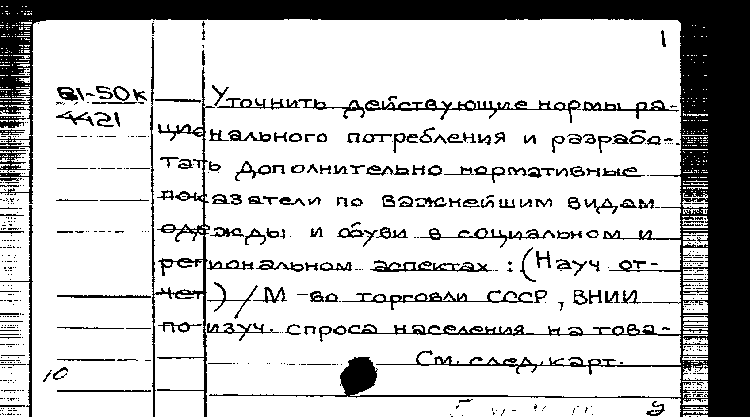 1
81-50к
4421
Уточнить действующие нормы ра-
ционального потребления и разрабо-
тать дополнительно нормативные
показатели по важнейшим видам
одежды и обуви в социальном и
региональном аспектах : (Науч от-
чет) / М-во торговли СССР, ВНИИ
по изуч. спроса населения на това-
См. след. карт.
10